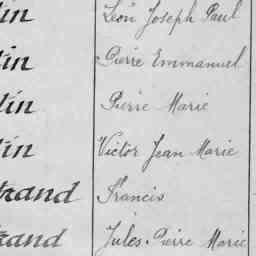 lin Léon Joseph Paul
lin Pierre Emmanuel
lin Pierre Marie
lin Victor Jean Marie
trand Francis
trand Jules Pierre Marie